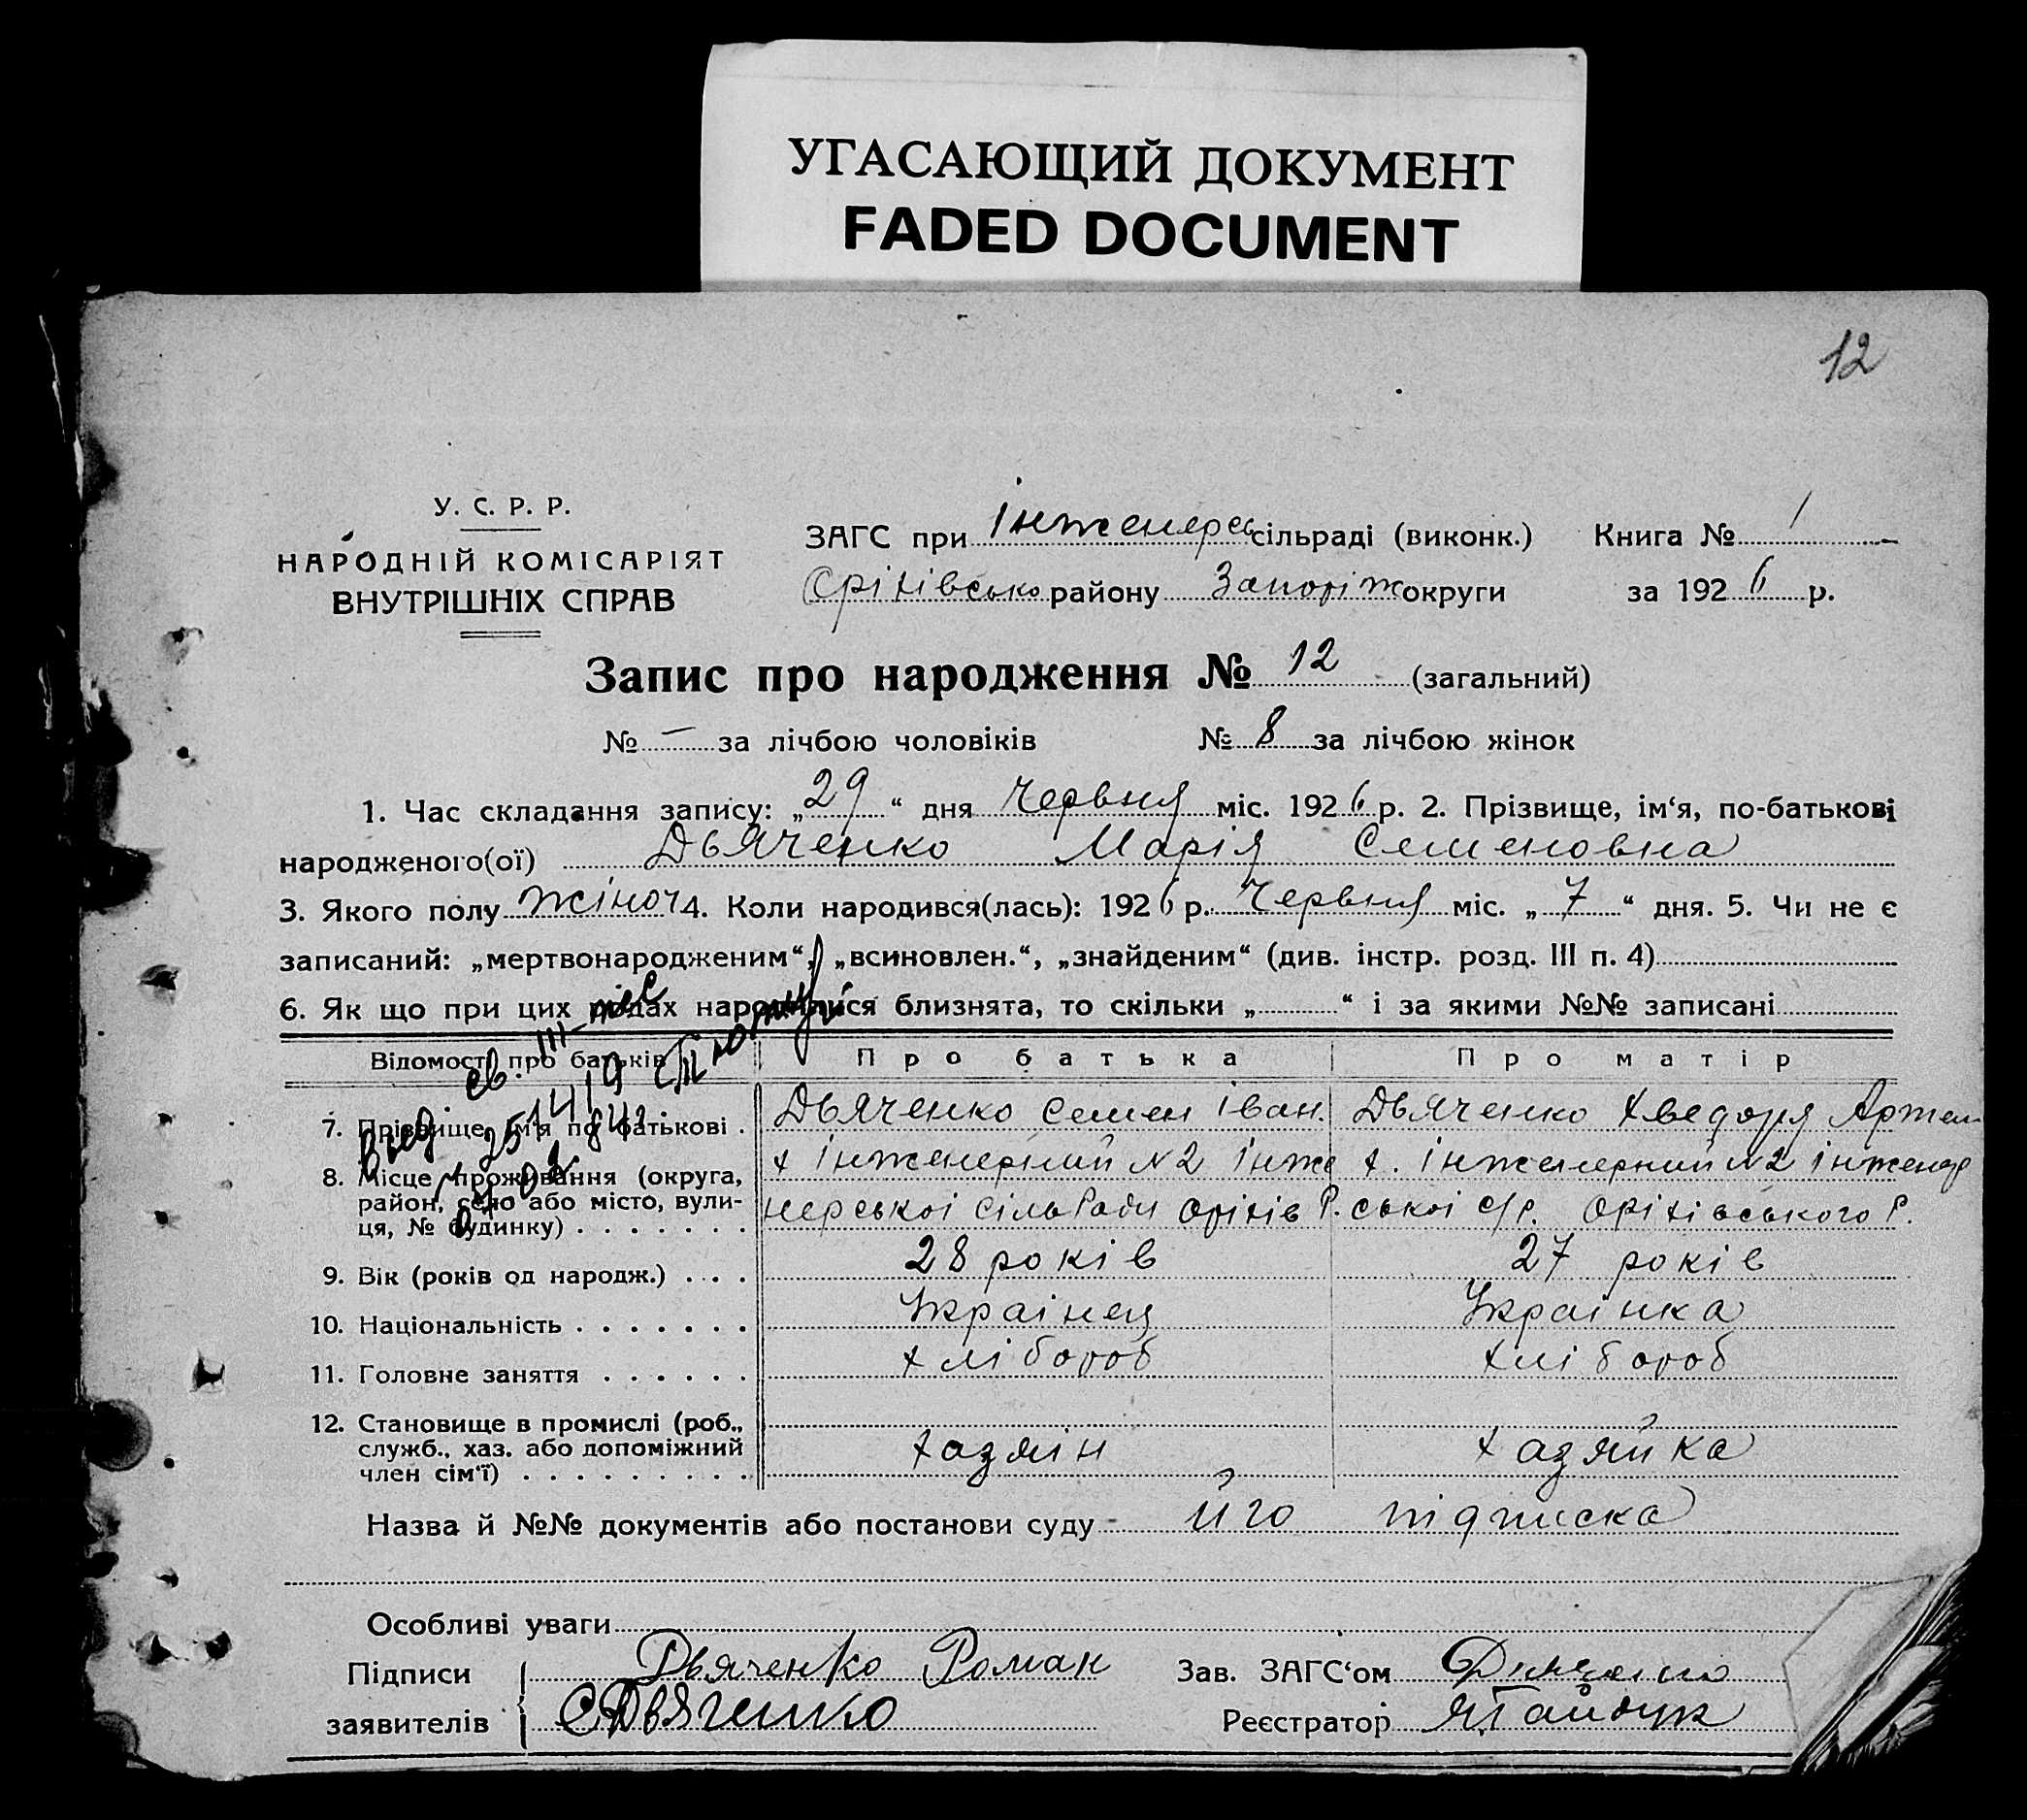 УГАСАЮЩИЙ ДОКУМЕНТ
FADED DOCUMENT
12
У. С. Р. Р.
НАРОДНІЙ КОМІСАРІЯТ
ВНУТРІШНІХ СПРАВ
ЗАГС при Інженерсь сільраді (виконк.) Книга № 1
Оріхівсько району Запоріж округи за 1926 р.
Запис про народження № 12 (загальний)
№ — за лічбою чоловіків № 8 за лічбою жінок
1. Час складання запису: „29“ дня Червня міс. 1926 р. 2. Прізвище, ім‘я, по-батькові
народженого(ої) Дьяченко Марія Семеновна
3. Якого полу жіноч 4. Коли народився(лась): 1926 р. Червня міс. „7“ дня. 5. Чи не є
записаний: „мертвонародженим“, „всиновлен.“, „знайденим“ (див. інстр. розд. III п. 4)
6. Як що при цих родах народилися близнята, то скільки „ “ і за якими №№ записані
Відомості про батьків Про батька Про матір
7. Прізвище, ім‘я по батькові . Дьяченко Семен Іван. Дьяченко Хведоря Артем
8. Місце проживання (округа, х Інженерний N2 Інже х. Інженерний N2 Інженер
район, село або місто, вули- нерської сільРади Оріхів Р. ської с/р. Оріхівського Р.
ця, № будинку) . . . . . . .
9. Вік (років од народж.) . . . 28 років 27 років
10. Національність . . . . . . . Українец Українка
11. Головне заняття . . . . . . хлібороб хлібороб
12. Становище в промислі (роб.,
служб., хаз. або допоміжний хазяін хазяйка
член сім‘ї) . . . . . . . . . .
Назва й №№ документів або постанови суду Його підписка
Особливі уваги
Підписи Дьяченко Роман Зав. ЗАГС‘ом
заявителів СДьяченко Реєстратор